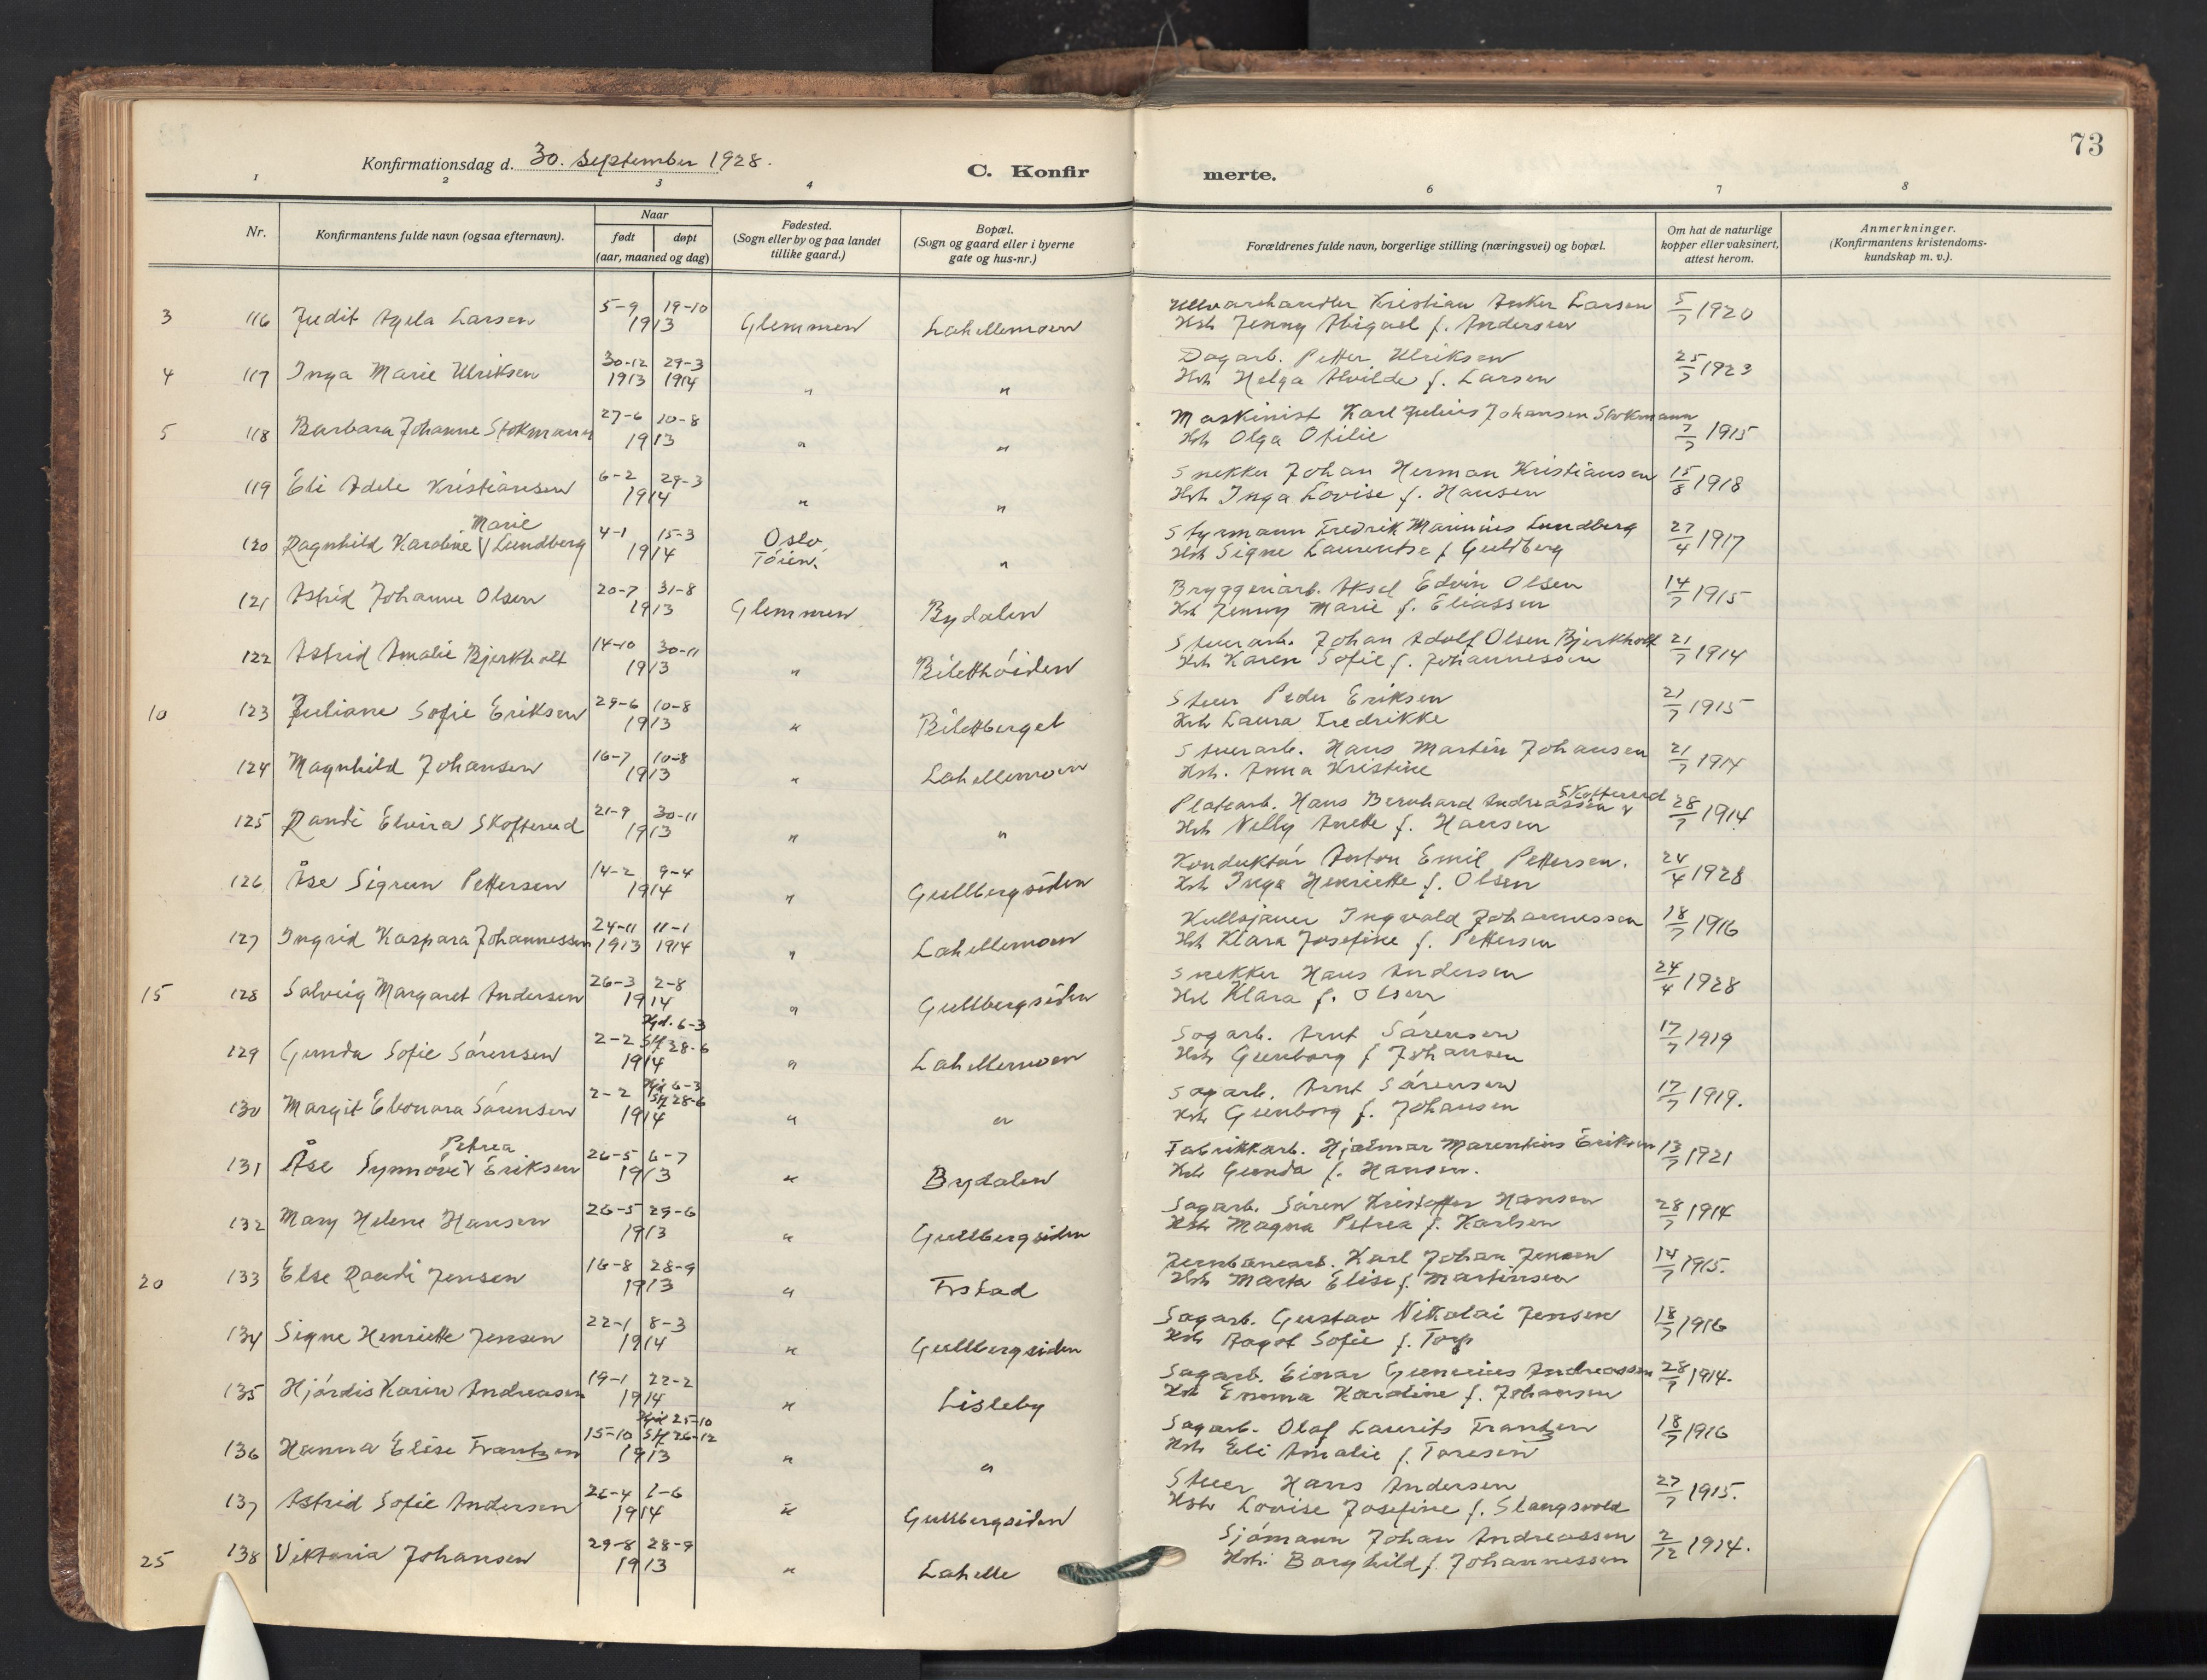 73
Konfirmationsdag d. 30. September 1928.
C. Konfir merte.
1 2 3 4 6 7 8
Nr.
Konfirmantens fulde navn (ogsaa efternavn).
Naar
født døpt
(aar, maaned og dag)
Fødested.
(Sogn eller by og paa landet
tillike gaard.)
Bopæl.
(Sogn og gaard eller i byerne
gate og hus-nr.)
Forældrenes fulde navn, borgerlige stilling (næringsvei) og bopæl.
Om hat de naturlige
kopper eller vaksinert,
attest herom.
Anmerkninger.
(Konfirmantens kristendoms-
kundskap m. v.).
3 116 Judit Agela Larsen 5-9 19-10 1913 Glemmen Lahellemoen
Kristian Anker Larsen 5/7 1920
Hst Jenny Abigael f. Andersen
4 117 Inga Marie Ulriksen 30-12 1913 29-3 1914 " "
Dagarb. Petter Ulriksen 25/7 1923
Hst Helga Alvilde f. Larsen
5 118 Barbara Johanne Stokmann 27-6 10-8 1913 " "
Maskinist Karl Julius Johansen Stokmann 7/7 1915
Hst Olga Otilie
119 Eli Adele Kristiansen 6-2 29-3 1914 " "
Snekker Johan Herman Kristiansen 15/8 1918
Hst Inga Lovise f. Hansen
120 Ragnhild Karoline Marie Lundberg 4-1 15-3 1914 Oslo Tóien. "
Styrmann Fredrik Marinius Lundberg 27/4 1917
Hst Signe Laurentse f Guldberg
121 Astrid Johanne Olsen 20-7 31-8 1913 Glemmen Bydalen
Bryggeriarb. Aksel Edvin Olsen 14/7 1915
Hst Jenny Marie f. Eliassen
122 Astrid Amalie Bjerkholt 14-10 30-11 1913 " Biletthóiden
Stuerarb. Johan Adolf Olsen Bjerkholt 21/7 1914
Hst Karen Sofie f. Johannesen
10 123 Juliane Sofie Eriksen 29-6 10-8 1913 " Biletberget
Stuer Peder Eriksen 21/7 1915
Hst Laura Fredrikke
124 Magnhild Johansen 16-7 10-8 1913 " Lahellemoen
Stuerarb. Hans Martin Johansen 21/7 1914
Hst. Anna Kristine
125 Randi Elvira Skofterud 21-9 30-11 1913 " "
Platearb. Hans Bernhard Andreassen Skofterud 28/7 1914
Hst Nelly Anette f. Hansen
126 Åse Sigrun Pettersen 14-2 9-4 1914 " Gullbergsiden
Konduktór Anton Emil Pettersen. 24/4 1928
Hst Inga Henriette f. Olsen
127 Ingrid Kaspara Johannessen 24-11 1913 11-1 1914 " Lahellemoen
Kullsjauer Ingvald Johannessen 18/7 1916
Hst Klara Josefine f. Pettersen
15 128 Solveig Margaret Andersen 26-3 2-8 1914 " Gullbergsiden
Snekker Hans Andersen 24/4 1928
Hst Klara f. Olsen
129 Gunda Sofie Sórensen 2-2 Hjd. 6-3 Stf 28-6 1914 " Lahellemoen
Sagarb. Arnt Sórensen 17/7 1919
Hst Gunborg f Johansen
130 Margit Elonora Sórensen 2-2 Hjd 6-3 Stf 28-6 1914 " "
Sagarb. Arnt Sórensen 17/7 1919.
Hst Gunborg f. Johansen
131 Åse Synnóve Petrea Eriksen 26-5 6-7 1913 " Bydalen
Fabrikkarb. Hjalmar Marentius Eriksen 13/7 1921
Hst Gunda f. Hansen.
132 Mary Helene Hansen 26-5 29-6 1913 " Gullbergsiden
Sagarb. Sóren Kristoffer Hansen 28/7 1914
Hst Magna Petrea f. Karlsen
20 133 Else Randi Jensen 16-8 28-9 1913 " Frstad
Jernbanearb. Karl Johan Jensen 14/7 1915.
Hst Marta Elise f. Martinsen
134 Signe Henriette Jensen 22-1 8-3 1914 " Gullbergsiden
Sagarb. Gustav Nikolai Jensen 18/7 1916
Hst Aagot Sofie f. Torp
135 Hjórdis Karin Andreasen 19-1 22-2 1914 " Lisleby
Sagarb. Einar Gunerius Andreassen 28/7 1914.
Hst Emma Karoline f. Johansen
136 Hanna Elise Frantzen 15-10 Hjd 25-10 Stf 26-12 1913 " "
Sagarb. Olaf Laurits Frantzen 18/7 1916
Hst Eli Amalie f. Toresen
137 Astrid Sofie Andersen 26-4 1-6 1914 " Gullbergsiden
Stuer Hans Andersen 27/7 1915.
Hst Lovise Josefine f. Slangsvold
25 138 Viktoria Johansen 29-8 28-9 1913 " Lahelle
Sjómann Johan Andreassen 2/12 1914.
Hst. Borghild f. Johannessen